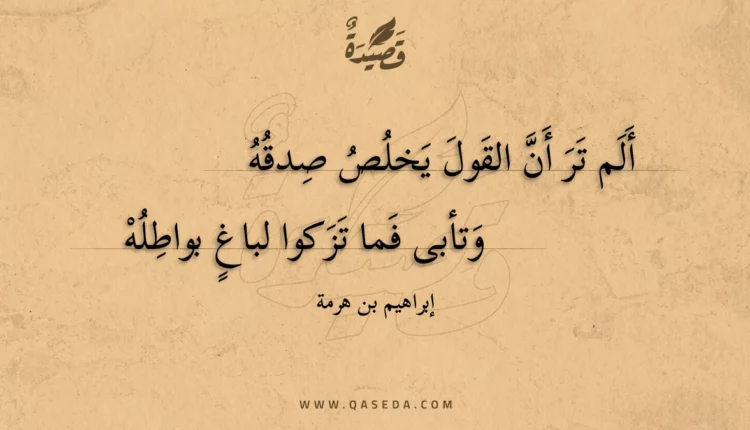 قَصِيْدَةٌ
أَلَم تَرَ أَنَّ القَولَ يَخلُصُ صِدقُهُ
وَتأبى فَما تَزَكوا لباغٍ بواطِلُهْ
إبراهيم بن هرمة
WWW.QASEDA.COM